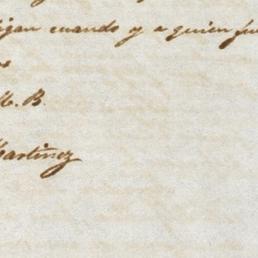 igan cuando y a quien fu
os
M. B.
Martinez